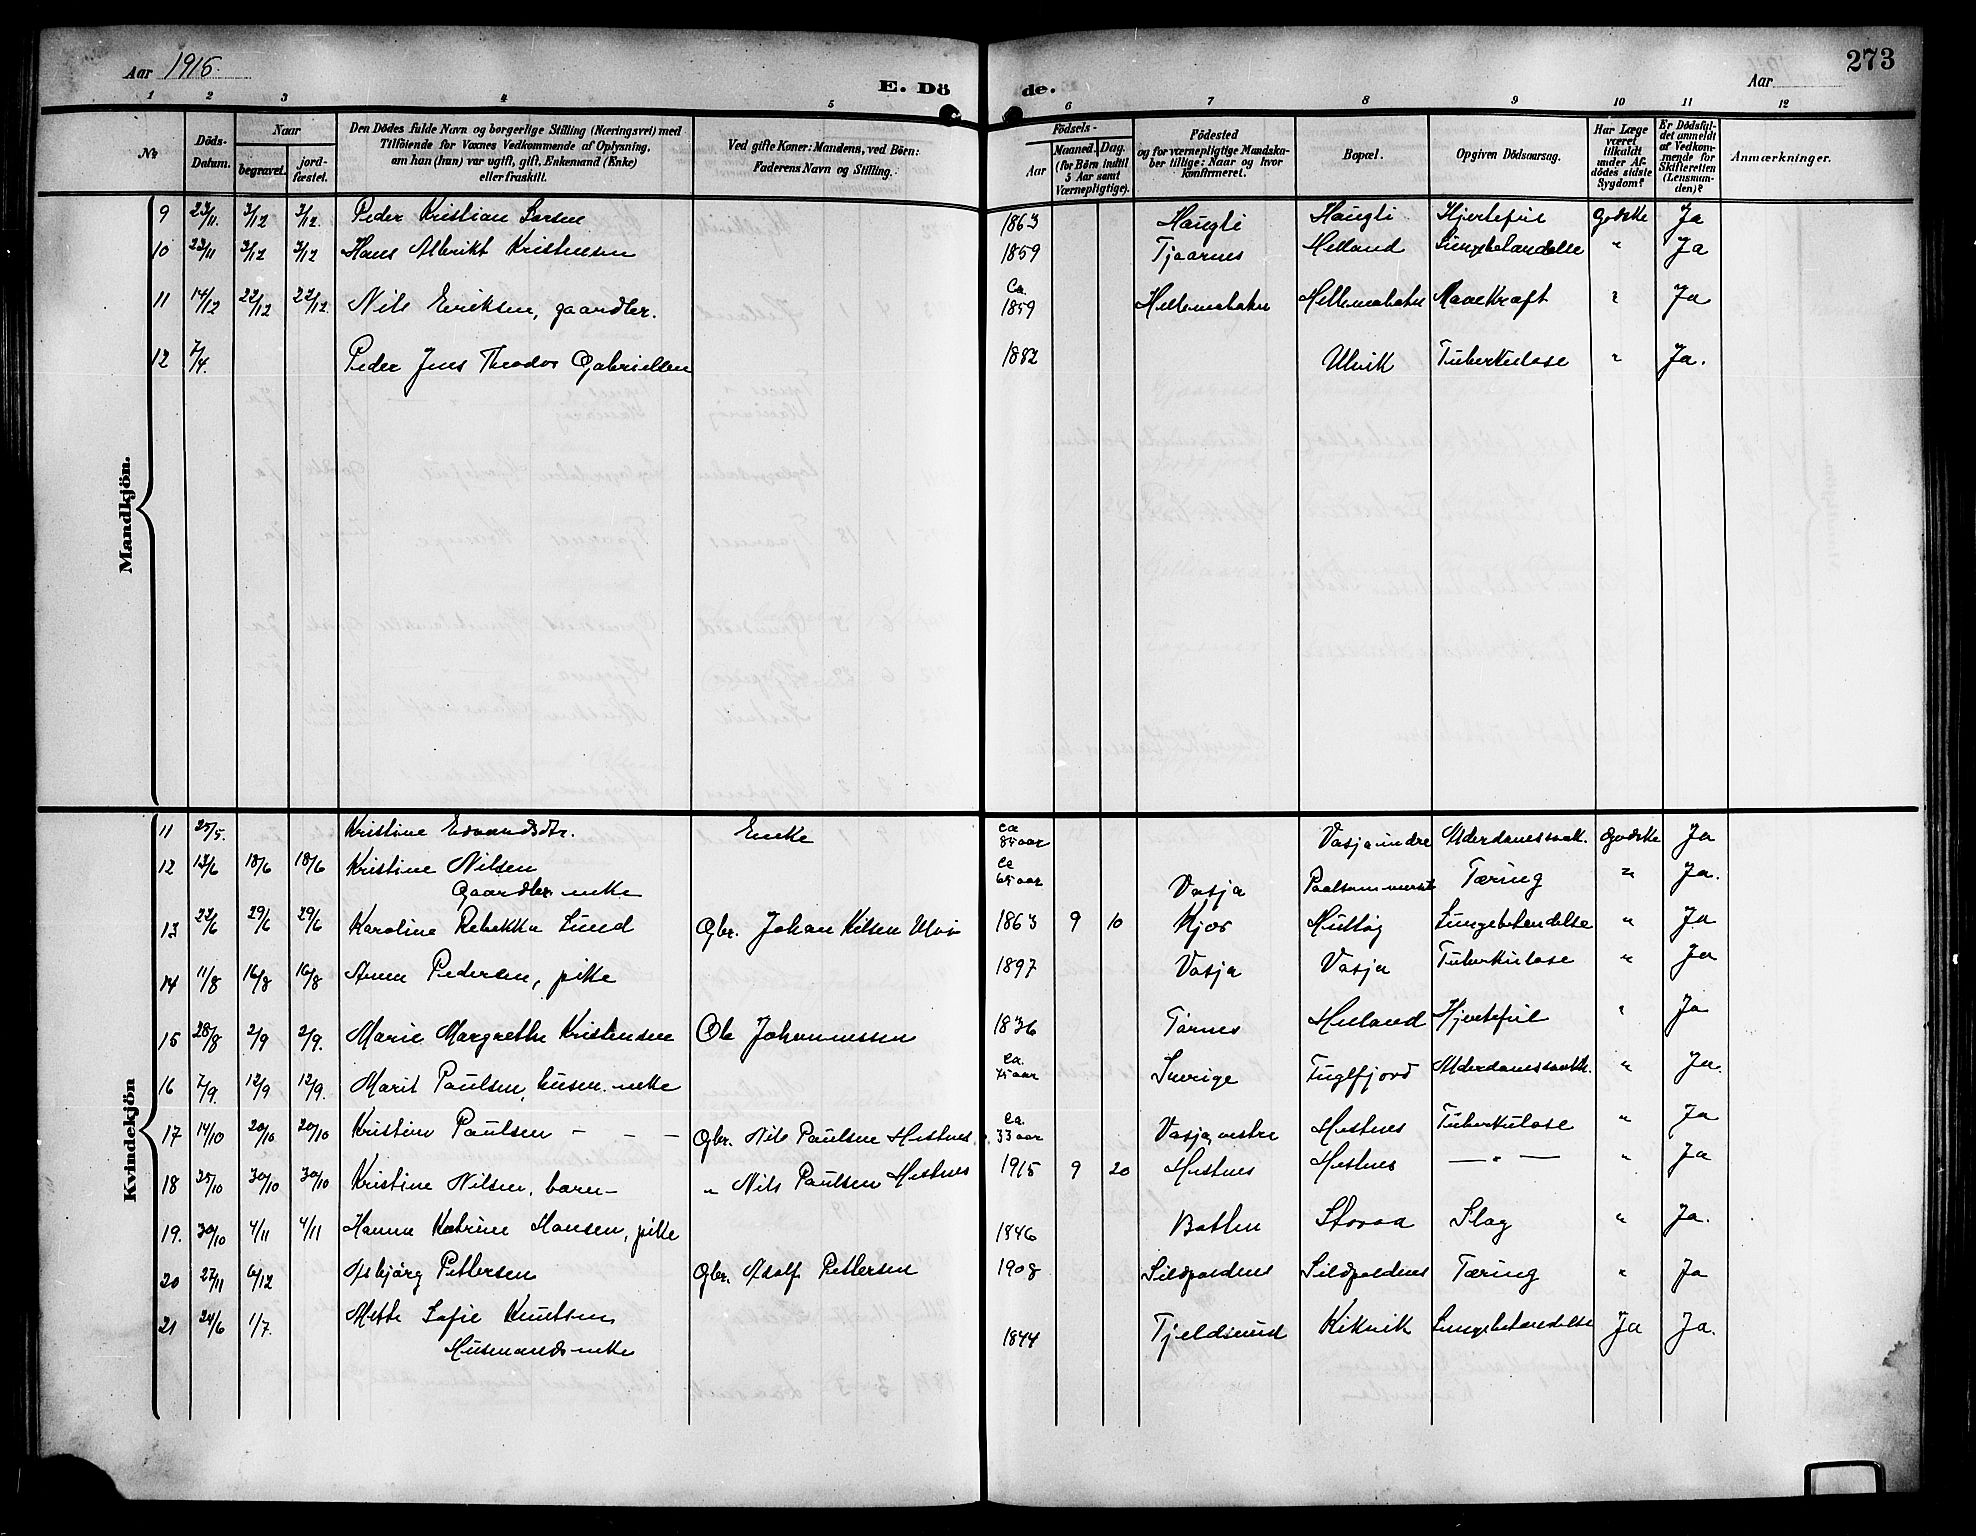 Aar 1916.
E. Döde.
273
Aar
1 2 3 4 5 6 7 8 9 10 11 12
No
Döds-Datum.
Naar
begravet.
jord-fæstet.
Den Dödes fulde Navn og borgerlige Stilling (Næringsvei) med
Tilföiende for Voxnes Vedkommende af Oplysning,
om han (hun) var ugift, gift, Enkemand (Enke)
eller fraskilt.
Ved gifte Koner: Mandens, ved Börn:
Faderens Navn og Stilling.
Födsels-
Aar
Maaned. Dag.
(for Börn indtil
5 Aar samt
Værnepligtige).
Födested
og for værnepligtige Mandska-
ber tillige: Naar og hvor
konfirmeret.
Bopæl.
Opgiven Dödsaarsag.
Har Læge
været
tilkaldt
under Af-
dödes sidste
Sygdom?
Er Dödsfal-
det anmeldt
af Vedkom-
mende for
Skifteretten
(Lensman-
den)?
Anmærkninger.
Mandkjön.
9 23/11 3/12 3/12 Peder Kristian Larsen 1863 Haugli Haugli Hjertefeil Godske Ja
10 23/11 3/12 3/12 Hans Albrikt Kristensen 1859 Tjaarnes Helland Lungebetændelse " Ja
11 14/12 22/12 22/12. Nils Eriksen, gaardbr. Ca. 1859 Hellemobotn Hellemobotn Mavekræft " Ja
12 7/4. Peder Jens Theodor Gabrielsen 1882 Ulvik Tuberkulose " Ja.
Kvindekjön
11 25/5. Kristine Edvardsdtr. Enke ca 85 aar Vasja indre Alderdomssvak. Godske Ja
12 13/6 18/6 18/6 Kristine Nilsen
Gaardbr. enke ca 65 aar Vasja Tæring " Ja.
13 22/6 29/6 29/6 Karoline Rebekka Lund Gbr. Johan Nilsen 1863 9 10 Kjær Lungebetendelse " Ja
14 11/8 16/8 16/8 Anna Pedersen, pike 1897 Vasja Vasja Tuberkulose " Ja
15 28/8 2/9 2/9. Marie Margrethe Kristensen Ole Johannessen 1836 Tørnes Helland Hjertefeil " Ja
16 7/9. 12/9 12/9. Marit Paulsen, husm. enke ca. Sverige Fuglfjord Alderdomssvakh. " Ja.
17 14/10 20/10 20/10 Kristine Paulsen — — — Gbr. Nils Paulsen Hestnes. ca. 33 aar Vasja, vestre Hestnes Tuberkulose " Ja
18 25/10 30/10 30/10 Kristine Nilsen, barn — " Nils Paulsen Hestnes 1915 9 20 Hestnes Hestnes — " — " Ja
19. 30/10 4/11 4/11 Hanna Katrine Hansen, pike 1846 Botten Storaa Slag " Ja.
20 27/11 6/12 Asbjørg Pettersen Gbr. Adolf Pettersen 1908 Sildpoldnes Sildpoldnes Tæring " Ja
21 24/6 1/7. Mette Sofie Knutsen
Husmandsenke 1844 Tjeldsund Kikvik Lungebetændelse Ja Ja.